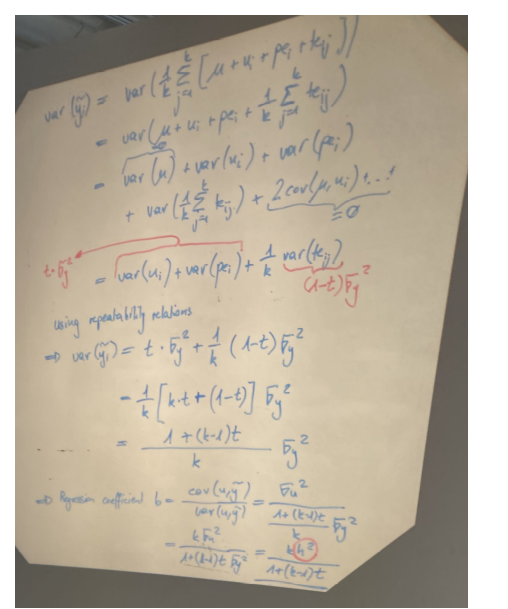 var(ỹᵢ) = var(1/k Σⱼ₌₁ᵏ [μ + uᵢ + peᵢ + teᵢⱼ])
= var(μ + uᵢ + peᵢ + 1/k Σⱼ₌₁ᵏ teᵢⱼ)
=0
= var(μ) + var(uᵢ) + var(peᵢ)
+ var(1/k Σⱼ₌₁ᵏ teᵢⱼ) + 2cov(μ,uᵢ) + ...
= 0
t·σy²
= var(uᵢ) + var(peᵢ) + 1/k var(teᵢⱼ)
(1-t)σy²
using repeatability relations
⇒ var(ỹᵢ) = t · σy² + 1/k (1-t)σy²
= 1/k [k·t + (1-t)] σy²
= (1+(k-1)t)/k σy²
⇒ Regression coefficient b = cov(u,ỹ)/var(ỹ) = σu² / ((1+(k-1)t)/k σy²)
= kσu² / (1+(k-1)t σy²) = kh² / (1+(k-1)t)